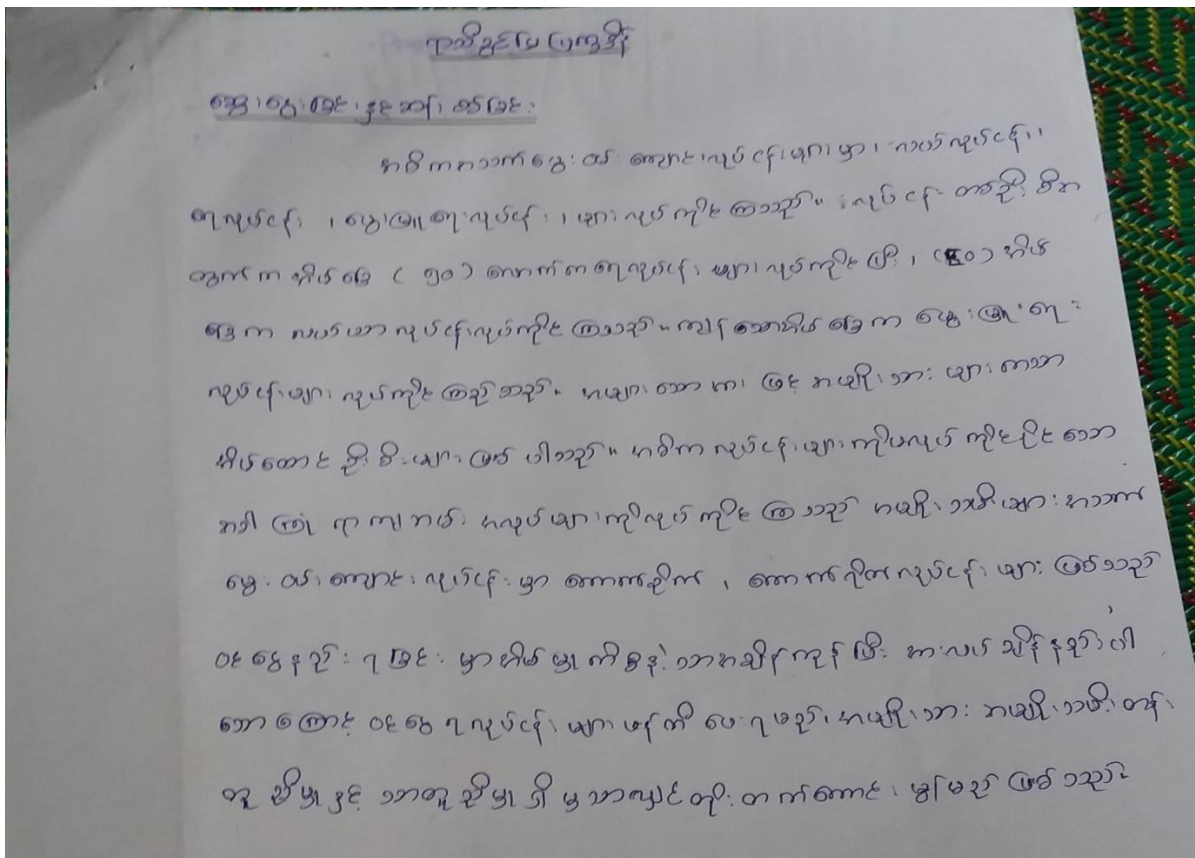 ရာသီခွင်ပြပြက္ခဒိန်
ဆွေးနွေးခြင်းနှင့်ဆန်းစစ်ခြင်း
အဓိကအသက်မွေးဝမ်းကျောင်းလုပ်ငန်းများမှာ၊ လယ်လုပ်ငန်း၊
ရေလုပ်ငန်း၊ မွေးမြူရေးလုပ်ငန်း၊ များလုပ်ကိုင်ကြသည်။ လုပ်ငန်းတစ်ဦးစီအ
တွက်က အိမ်ခြေ (၅၀) လောက်ကရေလုပ်ငန်းများလုပ်ကိုင်ပြီး၊ (၆၀) အိမ်
ခြေက လယ်ယာလုပ်ငန်းလုပ်ကိုင်ကြသည်။ ကျန်သောအိမ်ခြေက မွေးမြူရေး
လုပ်ငန်းများ လုပ်ကိုင်ကြသည်။ အများသောအားဖြင့် အမျိုးသားများကသာ
အိမ်ထောင်ဦးစီးများဖြစ်ပါသည်။ အဓိကလုပ်ငန်းများကိုမလုပ်ကိုင်နိုင်သော
အခါ ကြုံရာကျဘမ်းအလုပ်များကိုလုပ်ကိုင်ကြသည် အမျိုးသမီးများအသက်
မွေးဝမ်းကျောင်းလုပ်ငန်းမှာ ကောက်စိုက်၊ ကောက်ရိတ်လုပ်ငန်းများဖြစ်သည်
ဝင်ငွေနည်းရခြင်းမှာအိမ်မှုကိစ္စနဲ့သာအချိန်ကုန်ပြီး အားလပ်ချိန်နည်းပါ
သောကြောင့် ဝင်ငွေရလုပ်ငန်းများဖန်တီးပေးရမည်၊ အမျိုးသားအမျိုးသမီးတန်း
တူညီမျှနှင့် သာတူညီမျှရှိမှသာလျှင်တိုးတက်ကောင်းမွန်မည်ဖြစ်သည်။